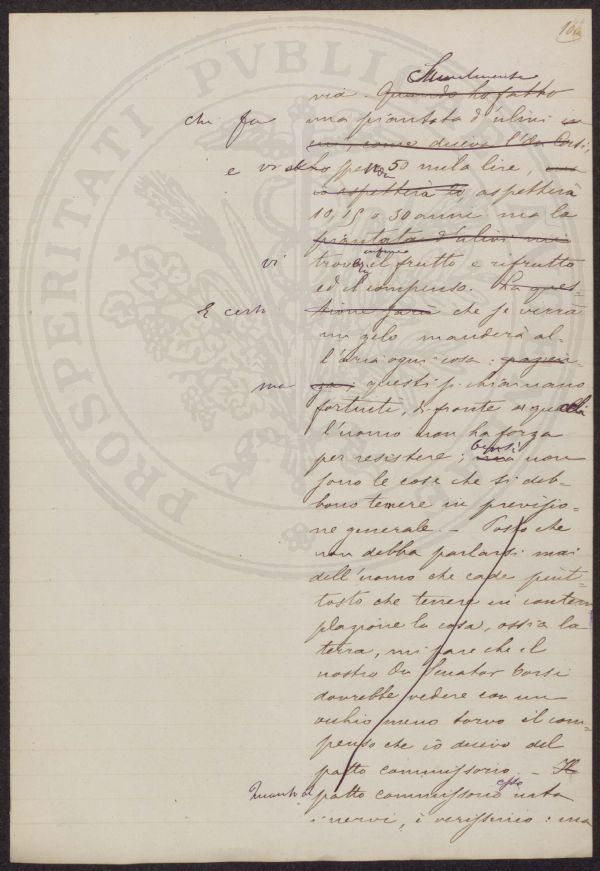 PROSPERITATI PVBLICAE
via. Quando ho fatto
chi fa una piantata d'ulivi
come diceva l'On. Corsi,
e vi ha spesi 50 mila lire,
aspetterà lo, aspetterà
10, 15 o 30 anni ma la
piantata d'ulivi mi
vi troverà il frutto e rifrutto
ed il compenso. La ques-
È certo tione sarà che se verrà
un gelo manderà al-
l'aria ogni cosa:
ma questi si chiamano
fortuiti, di fronte ai quali
l'uomo non ha forza
per resistere; bensì non
sono le cose che si deb-
bono tenere in previsio-
ne generale. - Posto che
non debba parlarsi mai
dell'uomo che cade piut-
tosto che tenere in contem-
plazione la cosa, ossia la
terra, mi pare che il
nostro On. Senator Corsi
dovrebbe vedere con un
occhio meno torvo il com-
penso che io dicevo del
patto commissorio. - Il
Quanto al patto commissorio esso urta
i nervi, è verissimo: ma